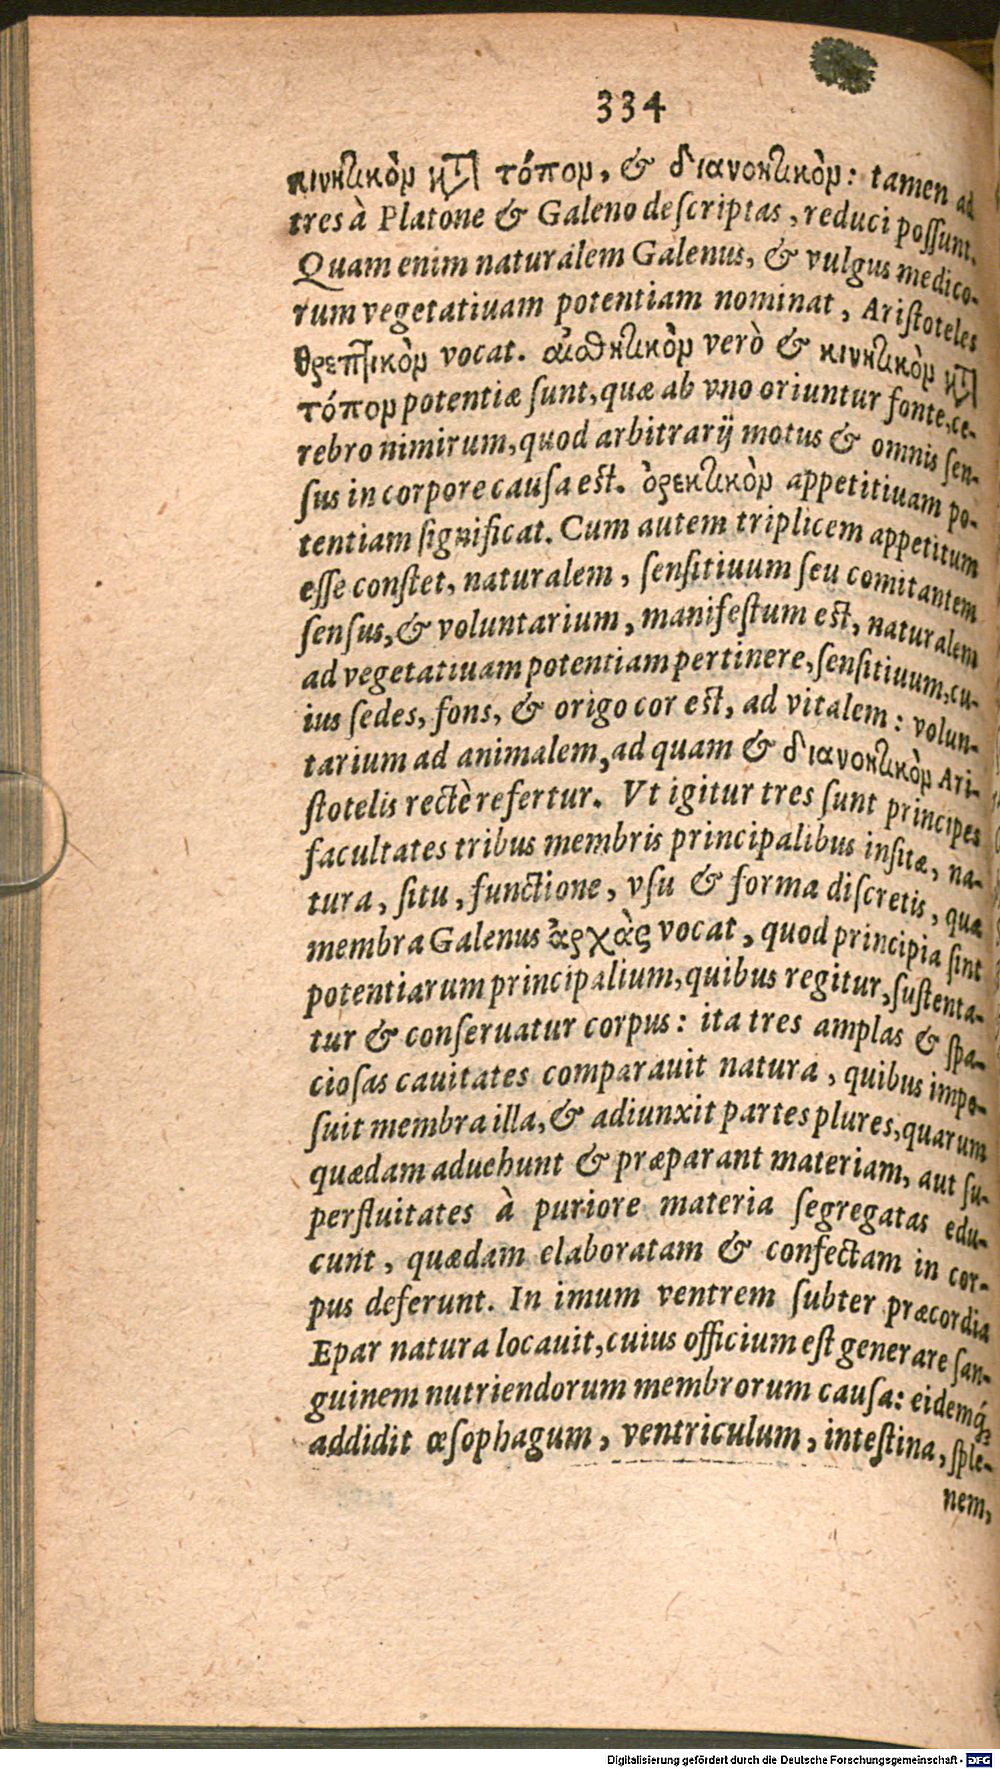 334
κινητικὸν κτ̀ τόπον, & διανοητικὸν: tamen ad
tres à Platone & Galeno deſcriptas, reduci poſſunt.
Quam enim naturalem Galenus, & vulgus medico-
rum vegetatiuam potentiam nominat, Ariſtoteles
θρεπτικὸν vocat. αἰσθητικὸν verò & κινητικὸν κτ̀
τόπον potentiæ ſunt, quæ ab vno oriuntur fonte, ce-
rebro nimirum, quod arbitrarij motus & omnis ſen-
ſus in corpore cauſa eſt. ὀρεκτικὸν appetitiuam po-
tentiam ſignificat. Cum autem triplicem appetitum
eſſe conſtet, naturalem, ſenſitiuum ſeu comitantem
ſenſus, & voluntarium, manifeſtum eſt, naturalem
ad vegetatiuam potentiam pertinere, ſenſitiuum, cu-
ius ſedes, fons, & origo cor eſt, ad vitalem: volun-
tarium ad animalem, ad quam & διανοητικὸν Ari-
ſtotelis rectè refertur. Vt igitur tres ſunt principes
facultates tribus membris principalibus inſitæ, na-
tura, ſitu, functione, vſu & forma diſcretis, quæ
membra Galenus ἀρχὰς vocat, quod principia ſint
potentiarum principalium, quibus regitur, ſuſtenta-
tur & conſeruatur corpus: ita tres amplas & ſpa-
cioſas cauitates comparauit natura, quibus impo-
ſuit membra illa, & adiunxit partes plures, quarum
quædam aduehunt & præparant materiam, aut ſu-
perfluitates à puriore materia ſegregatas edu-
cunt, quædam elaboratam & confectam in cor-
pus deferunt. In imum ventrem ſubter præcordia
Epar natura locauit, cuius officium eſt generare ſan-
guinem nutriendorum membrorum cauſa: eidemq́;
addidit œſophagum, ventriculum, inteſtina, ſple-
nem,
Digitalisierung gefördert durch die Deutsche Forschungsgemeinschaft - DFG